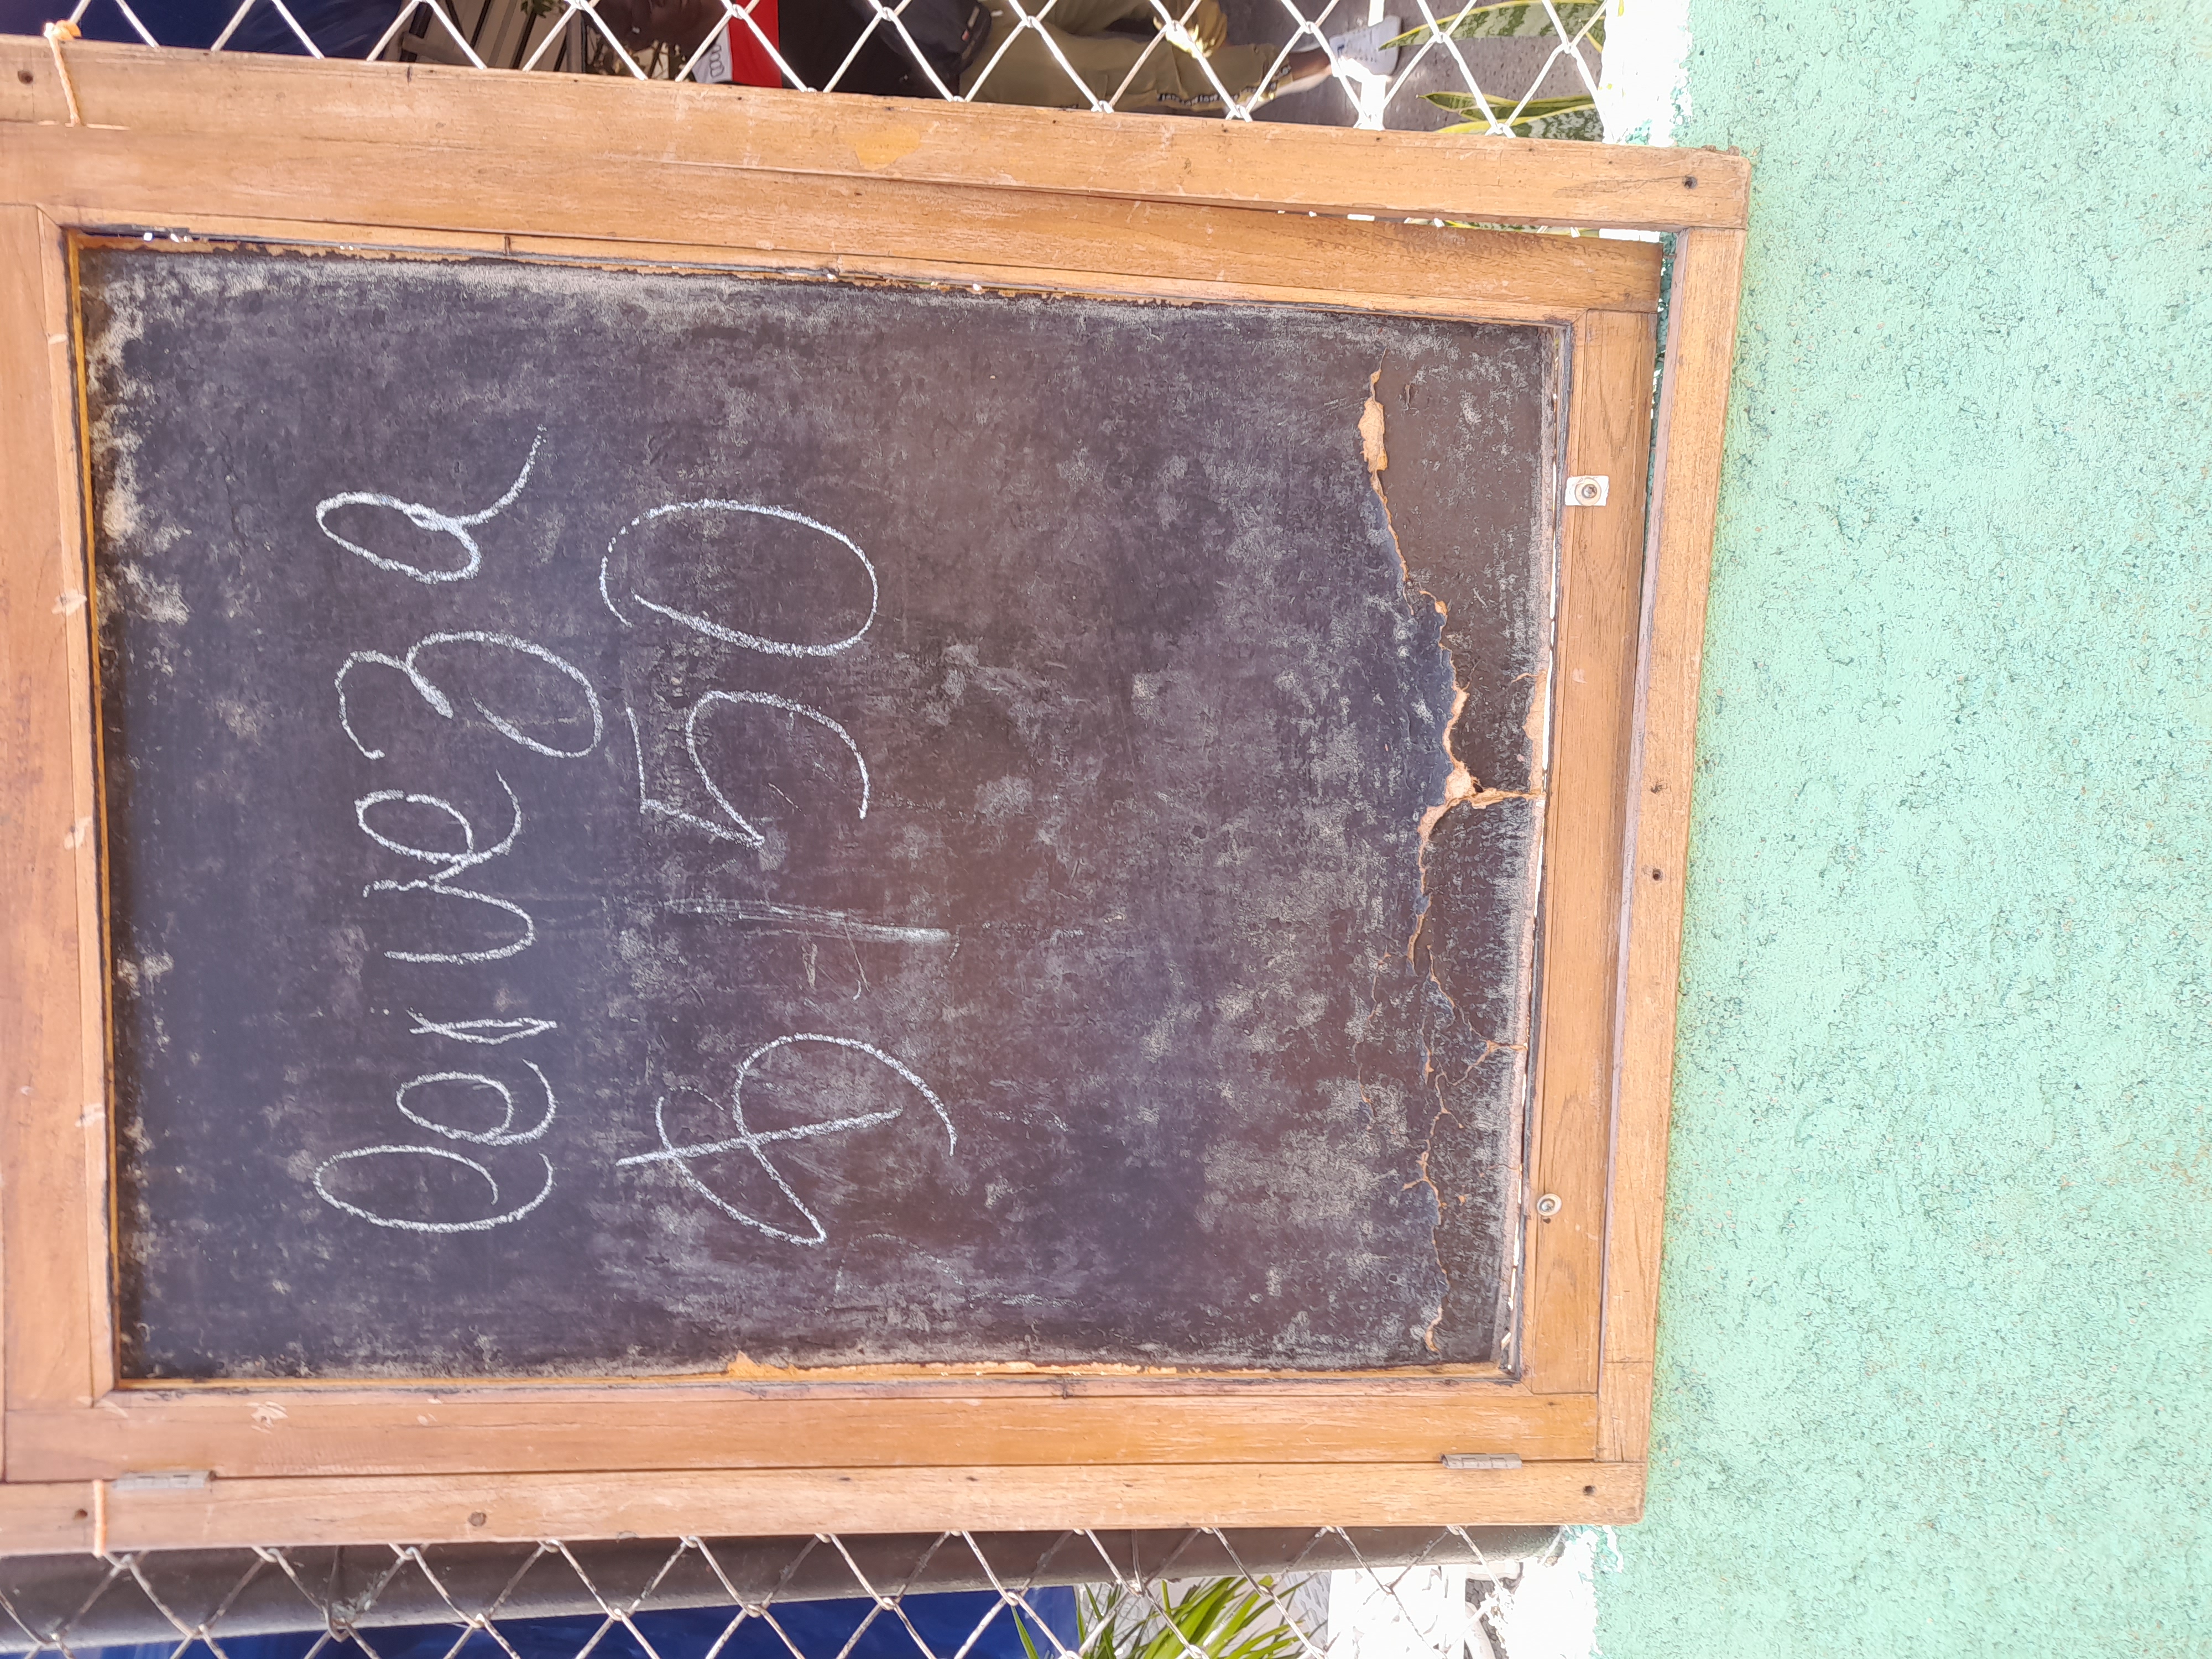 Cerveza
$150